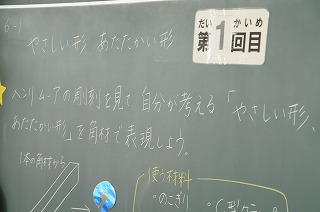 6-1
やさしい形 あたたかい形
だい 1 かいめ
第1回目
ヘンリームーアの彫刻を見て 自分が考える「やさしい形、
あたたかい形」を角材で表現しよう。
1本の角材から
使う材料
のこぎり
C型クラ